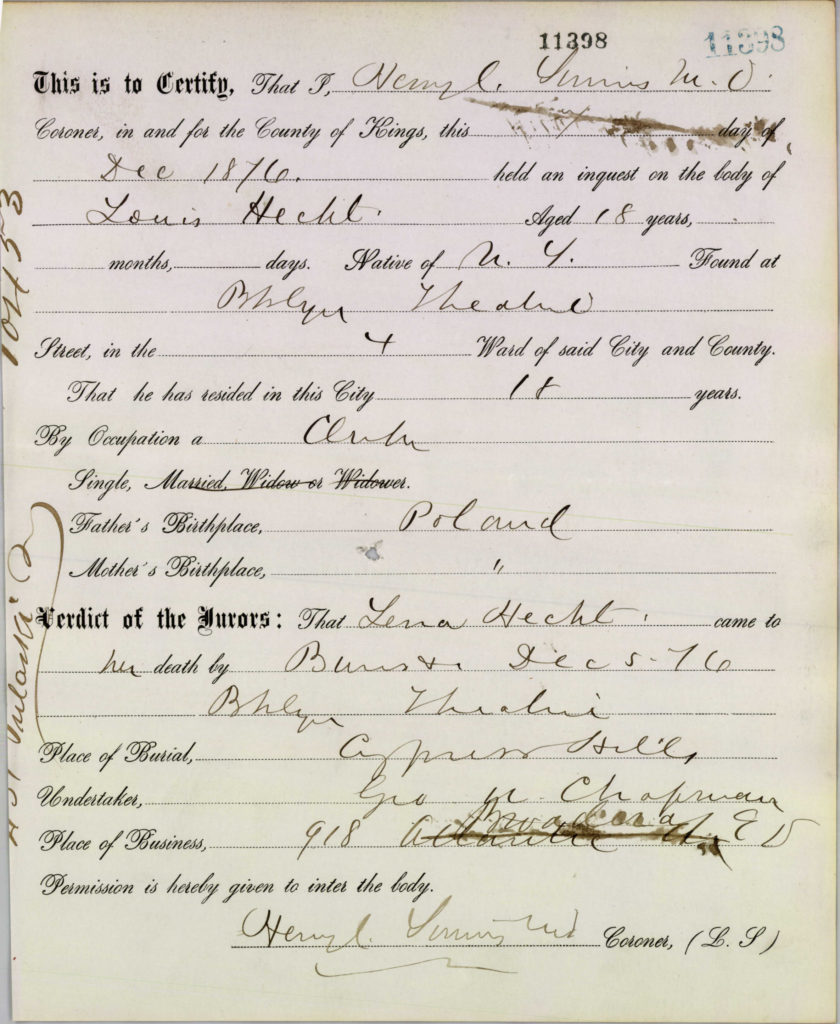 11398 11398
This is to Certify, That I, Henry C. Simms M. D.
Coroner, in and for the County of Kings, this day of
Dec 1876. held an inquest on the body of
Louis Hecht. Aged 18 years,
months, days. Native of N. Y. Found at
Bklyn Theatre
Street, in the 4 Ward of said City and County.
That he has resided in this City 18 years.
By Occupation a Clerk
Single, Married, Widow or Widower.
Father's Birthplace, Poland
Mother's Birthplace, "
Verdict of the Jurors: That Lena Hecht. came to
her death by Burns &c. Dec 5-76
Bklyn Theatre
Place of Burial, Cypress Hills
Undertaker, Geo N. Chapman
Place of Business, 918 Atlantic Av Broadway E D
Permission is hereby given to inter the body.
Henry C. Simms MD Coroner, (L. S)
10453
Pulaski